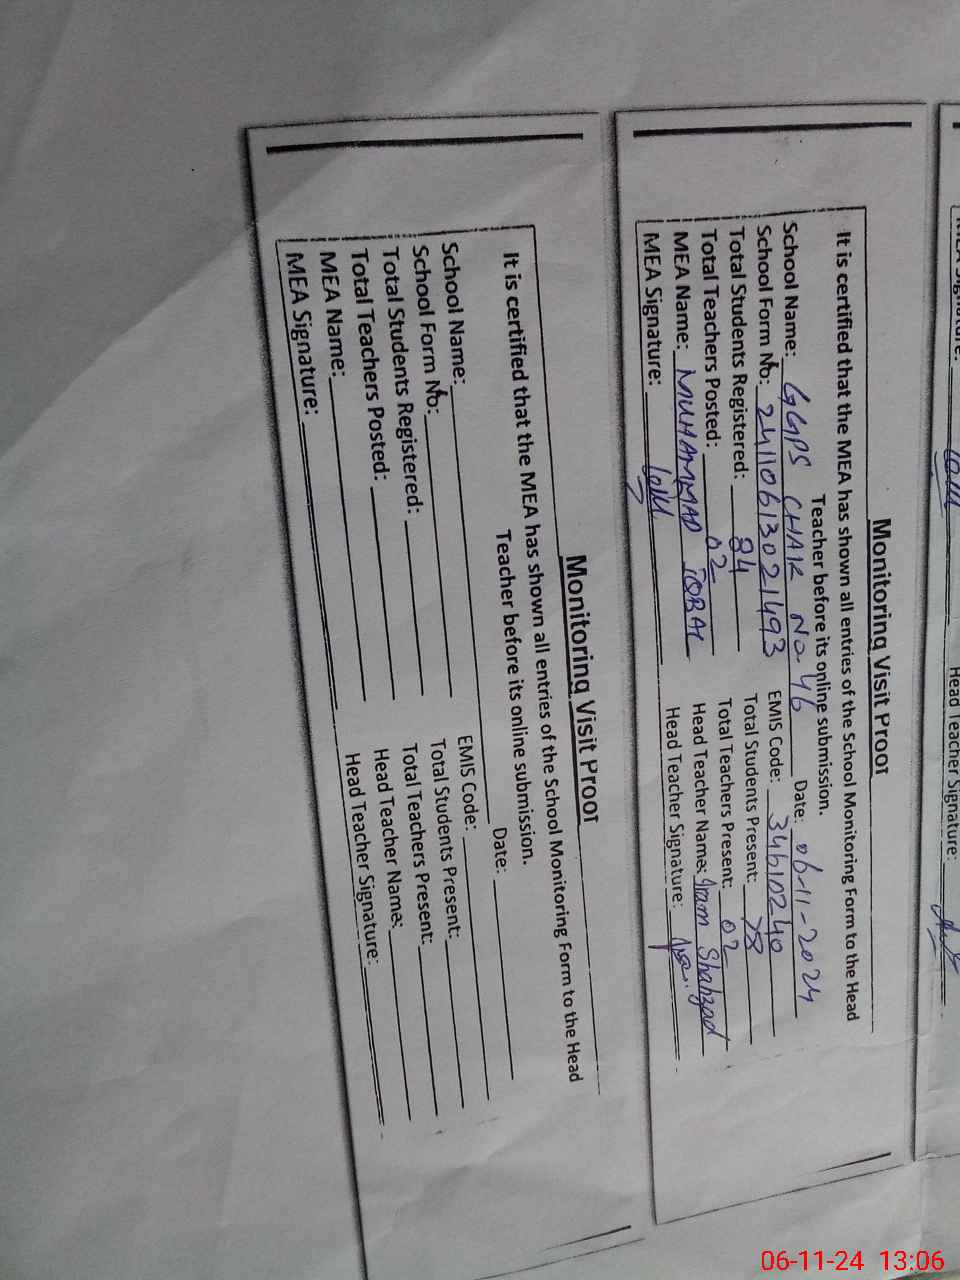 MEA Signature:
Head Teacher Signature:
Monitoring Visit Proof
It is certified that the MEA has shown all entries of the School Monitoring Form to the Head
Teacher before its online submission.
School Name: GGPS CHAK No 46 Date: 06-11-2024
School Form No: 24110613021493 EMIS Code: 34610240
Total Students Registered: 84 Total Students Present: 78
Total Teachers Posted: 02 Total Teachers Present: 02
MEA Name: MUHAMMAD IQBAL Head Teacher Name: Iram Shahzad
MEA Signature: Head Teacher Signature:
Monitoring Visit Proof
It is certified that the MEA has shown all entries of the School Monitoring Form to the Head
Teacher before its online submission.
School Name: Date:
School Form No: EMIS Code:
Total Students Registered: Total Students Present:
Total Teachers Posted: Total Teachers Present:
MEA Name: Head Teacher Name:
MEA Signature: Head Teacher Signature:
06-11-24 13:06